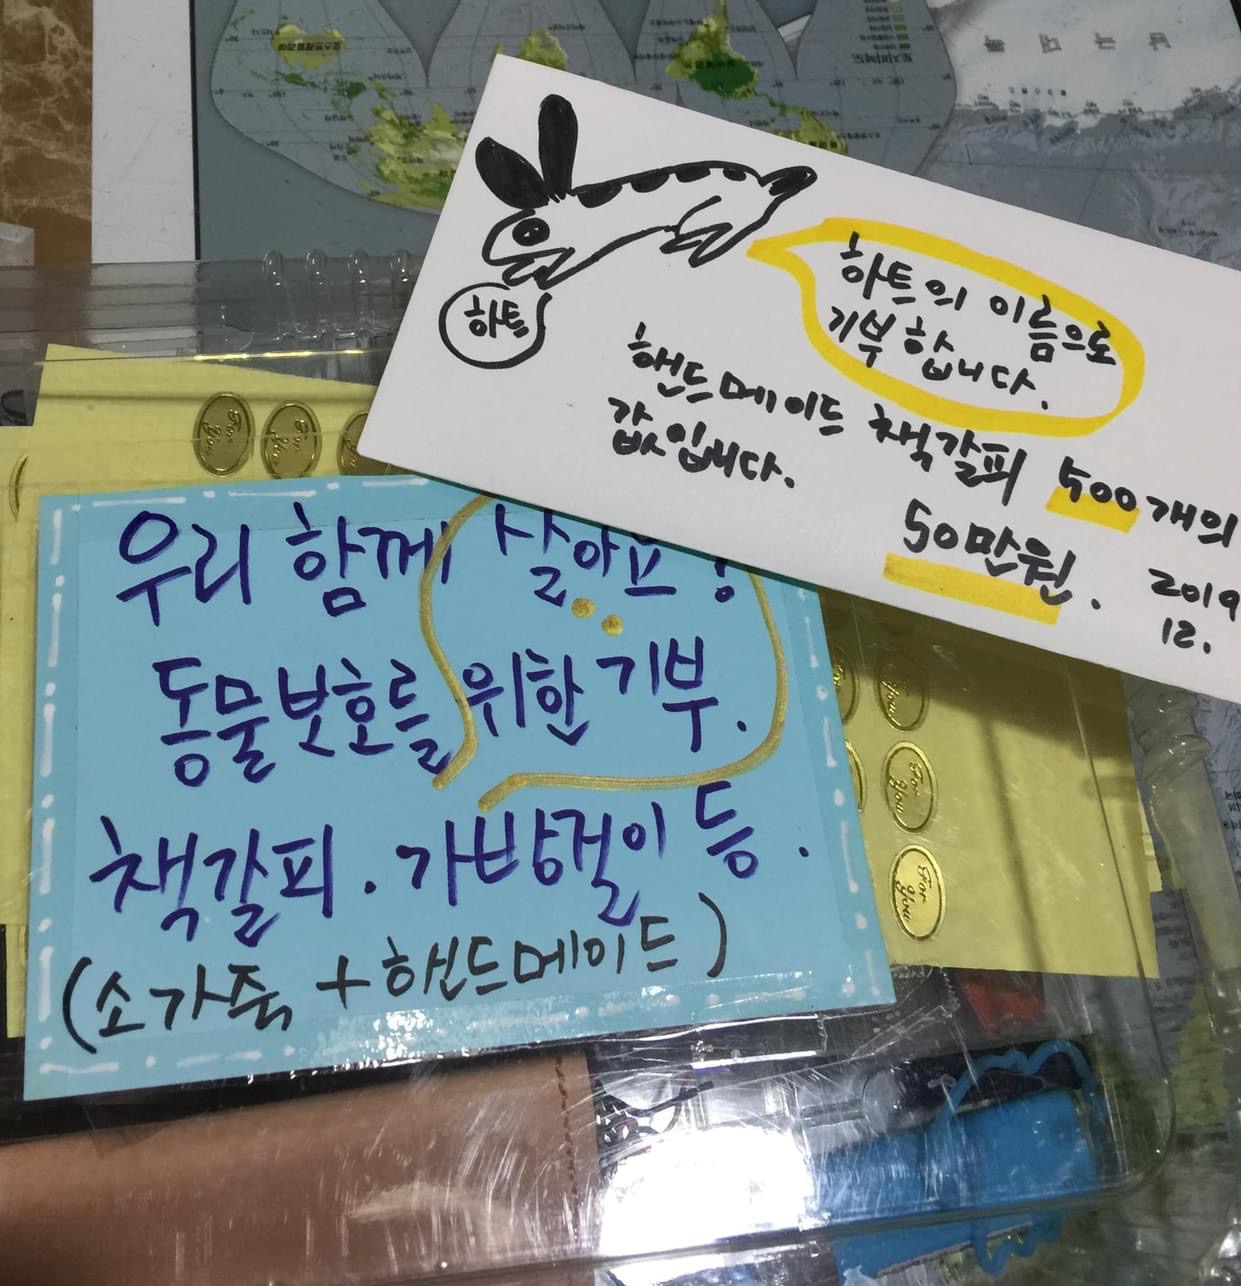 하트
하트의 이름으로
기부합니다.
핸드메이드 책갈피 500개의
값입니다.
50만원.
2019
12.
우리 함께 살아요!
동물보호를 위한 기부.
책갈피. 가방걸이 등.
(소가죽 + 핸드메이드)
For
you
For
you
For
you
For
you
For
you